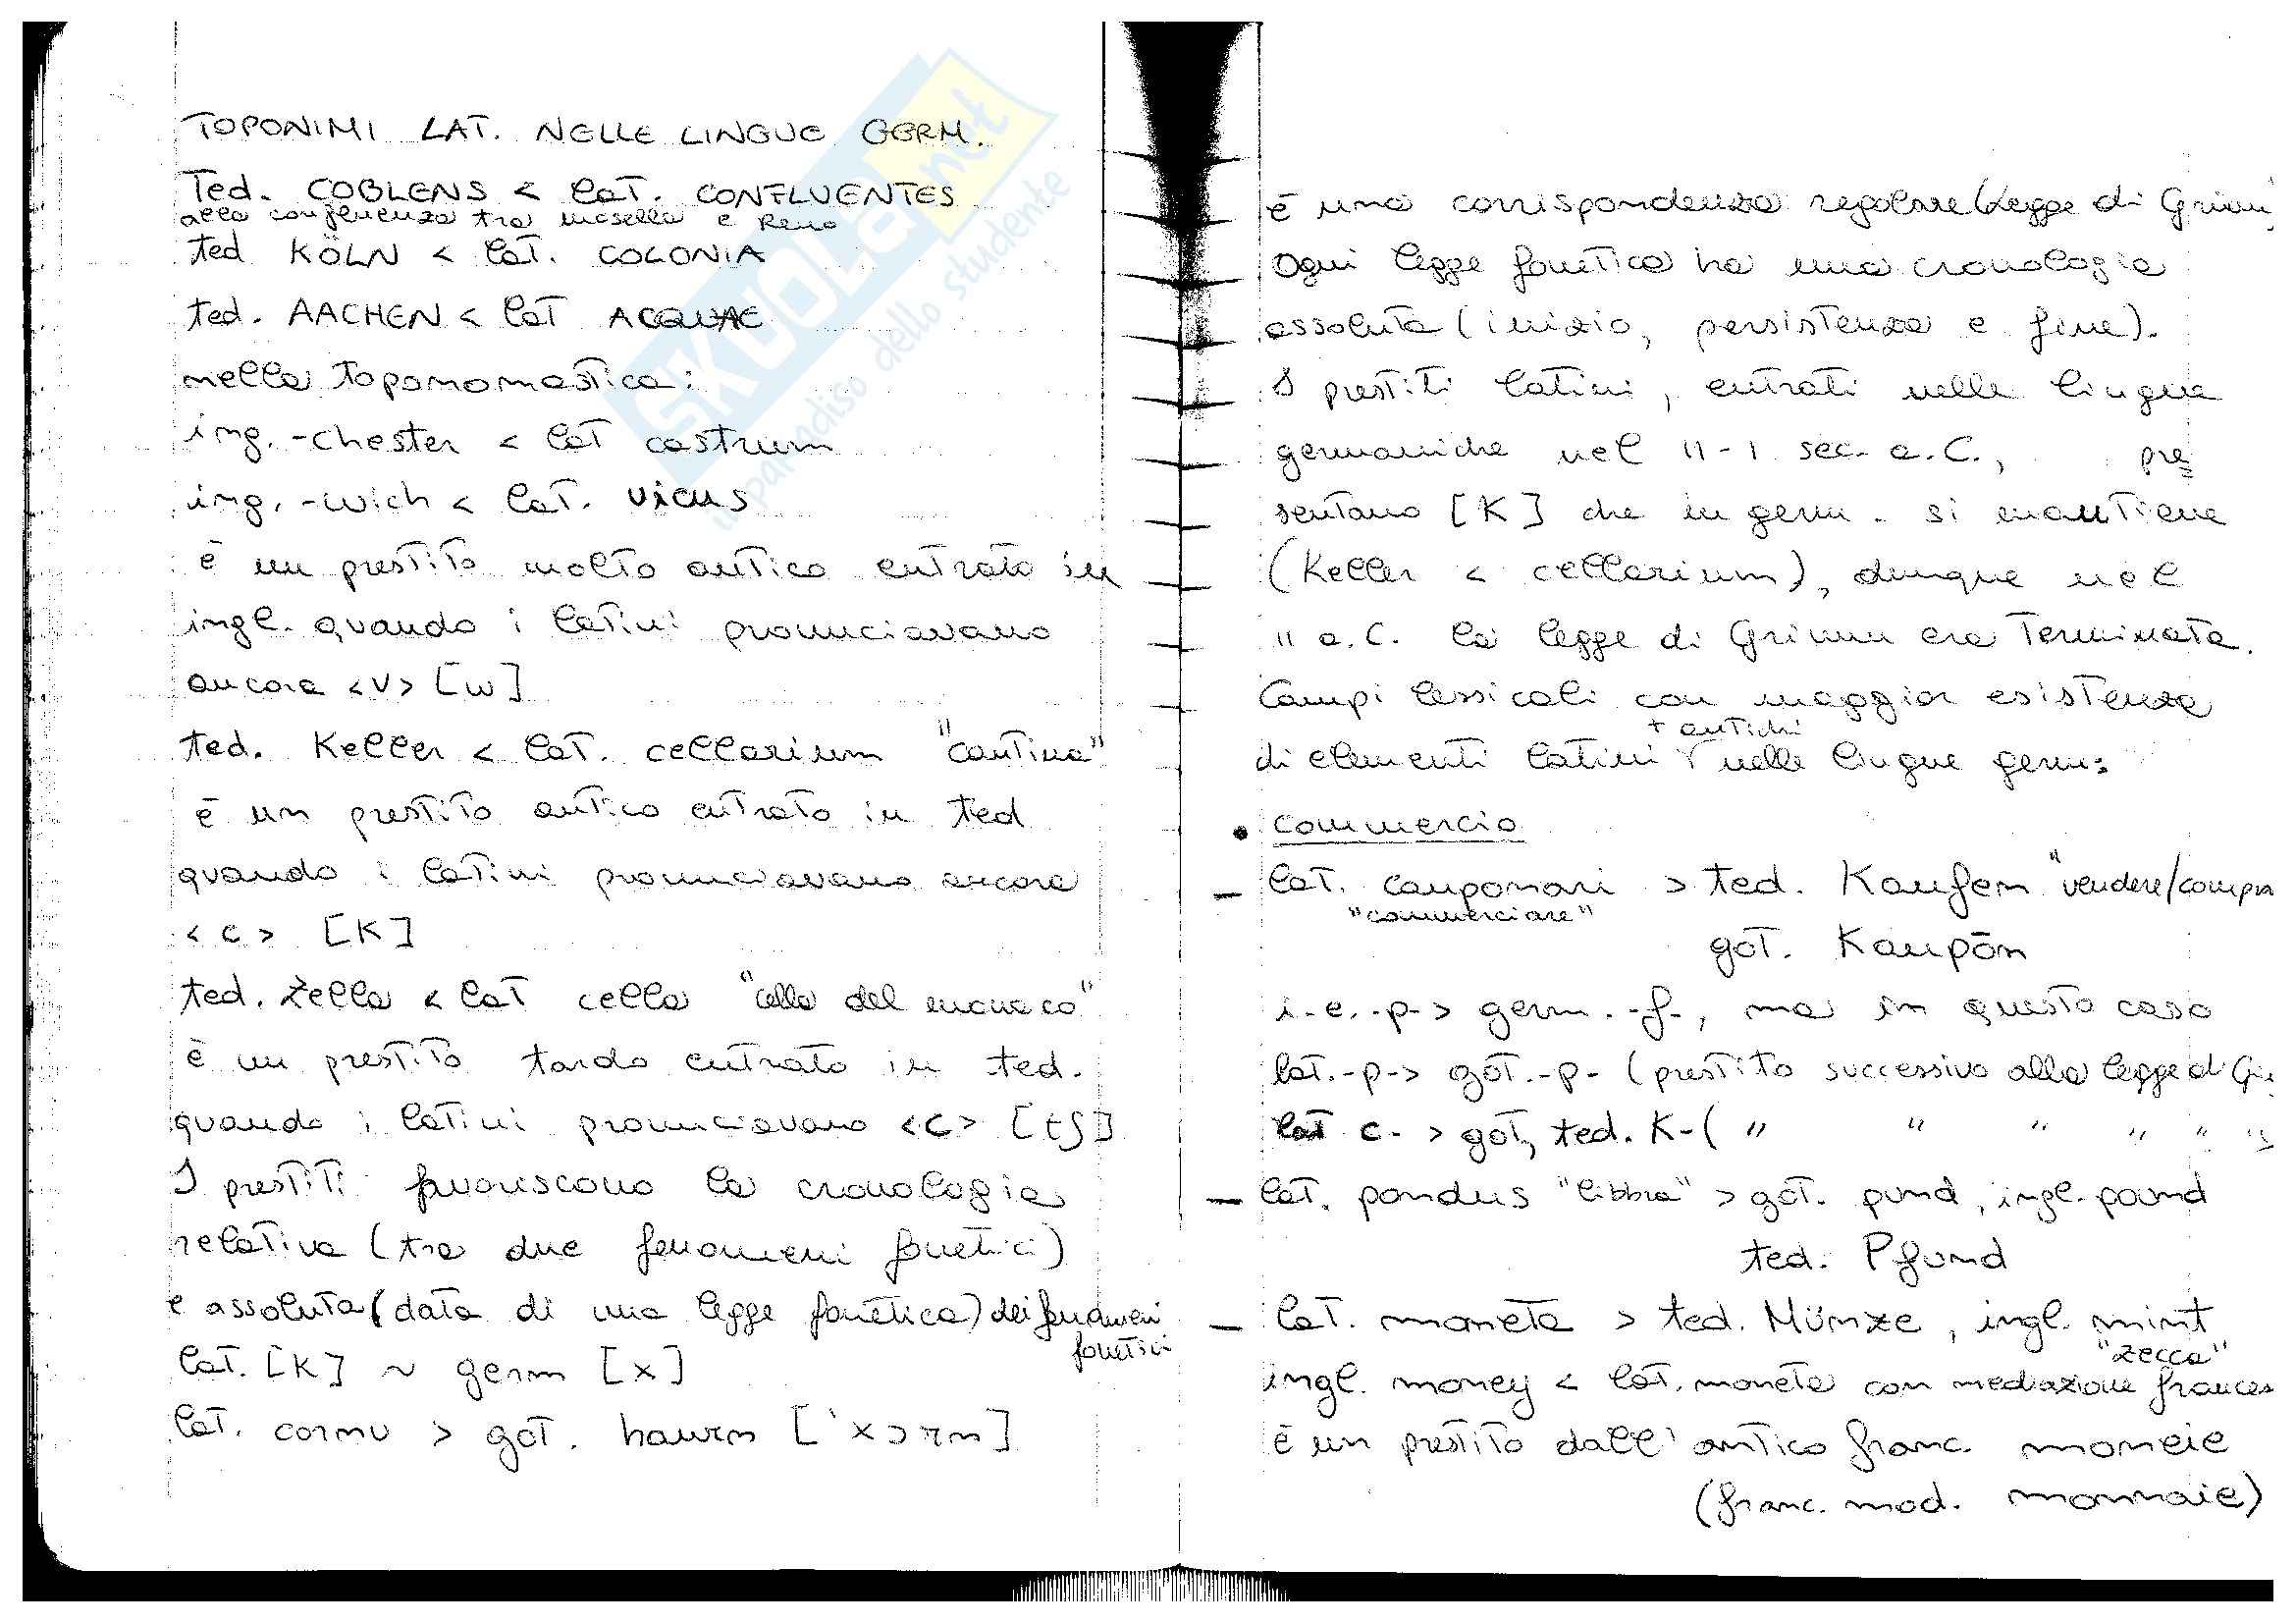 TOPONIMI LAT. NELLE LINGUE GERM.
Ted. COBLENS < lat. CONFLUENTES
alla confluenza tra Mosella e Reno
ted KÖLN < lat. COLONIA
ted. AACHEN < lat ACQUAE
nella toponomastica:
ing. -chester < lat castrum
ing. -wich < lat. vicus
è un prestito molto antico entrato in
ingl. quando i latini pronunciavano
ancora <v> [w]
ted. Keller < lat. cellarium "cantina"
è un prestito antico entrato in ted
quando i latini pronunciavano ancora
<c> [K]
ted. Zella < lat cella "cella del monaco"
è un prestito tardo entrato in ted.
quando i latini pronunciavano <c> [tʃ]
I prestiti favoriscono la cronologia
relativa (tra due fenomeni fonetici)
e assoluta (data di una legge fonetica) dei fenomeni
fonetici
lat. [K] ~ germ [x]
lat. cornu > got. haurn ['xɔrn]
è una corrispondenza regolare (Legge di Grimm
Ogni legge fonetica ha una cronologia
assoluta (inizio, persistenza e fine).
I prestiti latini, entrati nelle lingue
germaniche nel II-I sec. a.C., pre
sentano [K] che in germ. si mantiene
(Keller < cellarium), dunque nel
II a.C. la legge di Grimm era terminata.
Campi lessicali con maggior esistenza
+ antichi
di elementi latini nelle lingue germ:
• commercio
– lat. cauponari > ted. Kaufen "vendere/compra
"commerciare"
got. Kaupōn
i.e. -p- > germ. -f-, ma in questo caso
lat. -p- > got. -p- (prestito successivo alla legge di Gri
lat c- > got, ted. K- ( " " " " " "
– lat. pondus "libbra" > got. pund, ingl. pound
ted. Pfund
– lat. moneta > ted. Münze, ingl. mint
"zecca"
ingl. money < lat. moneta con mediazione frances
è un prestito dall'antico franc. moneie
(franc. mod. monnaie)
SKUOLA.net
il paradiso dello studente